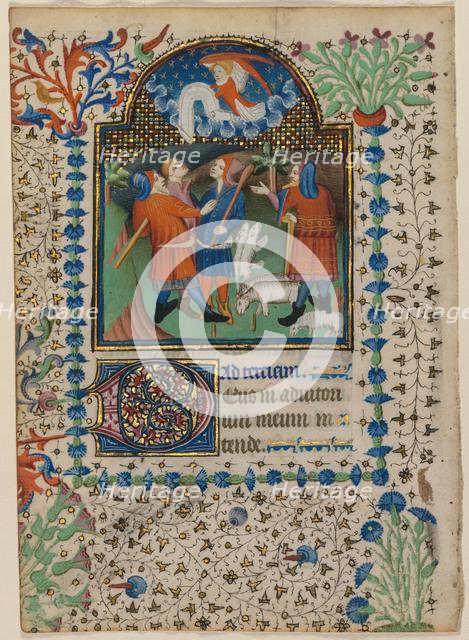 Heritage Heritage
Heritage Heritage
Ad terciam
Deus in adiutori
um meum in
tende
Heritage Heritage